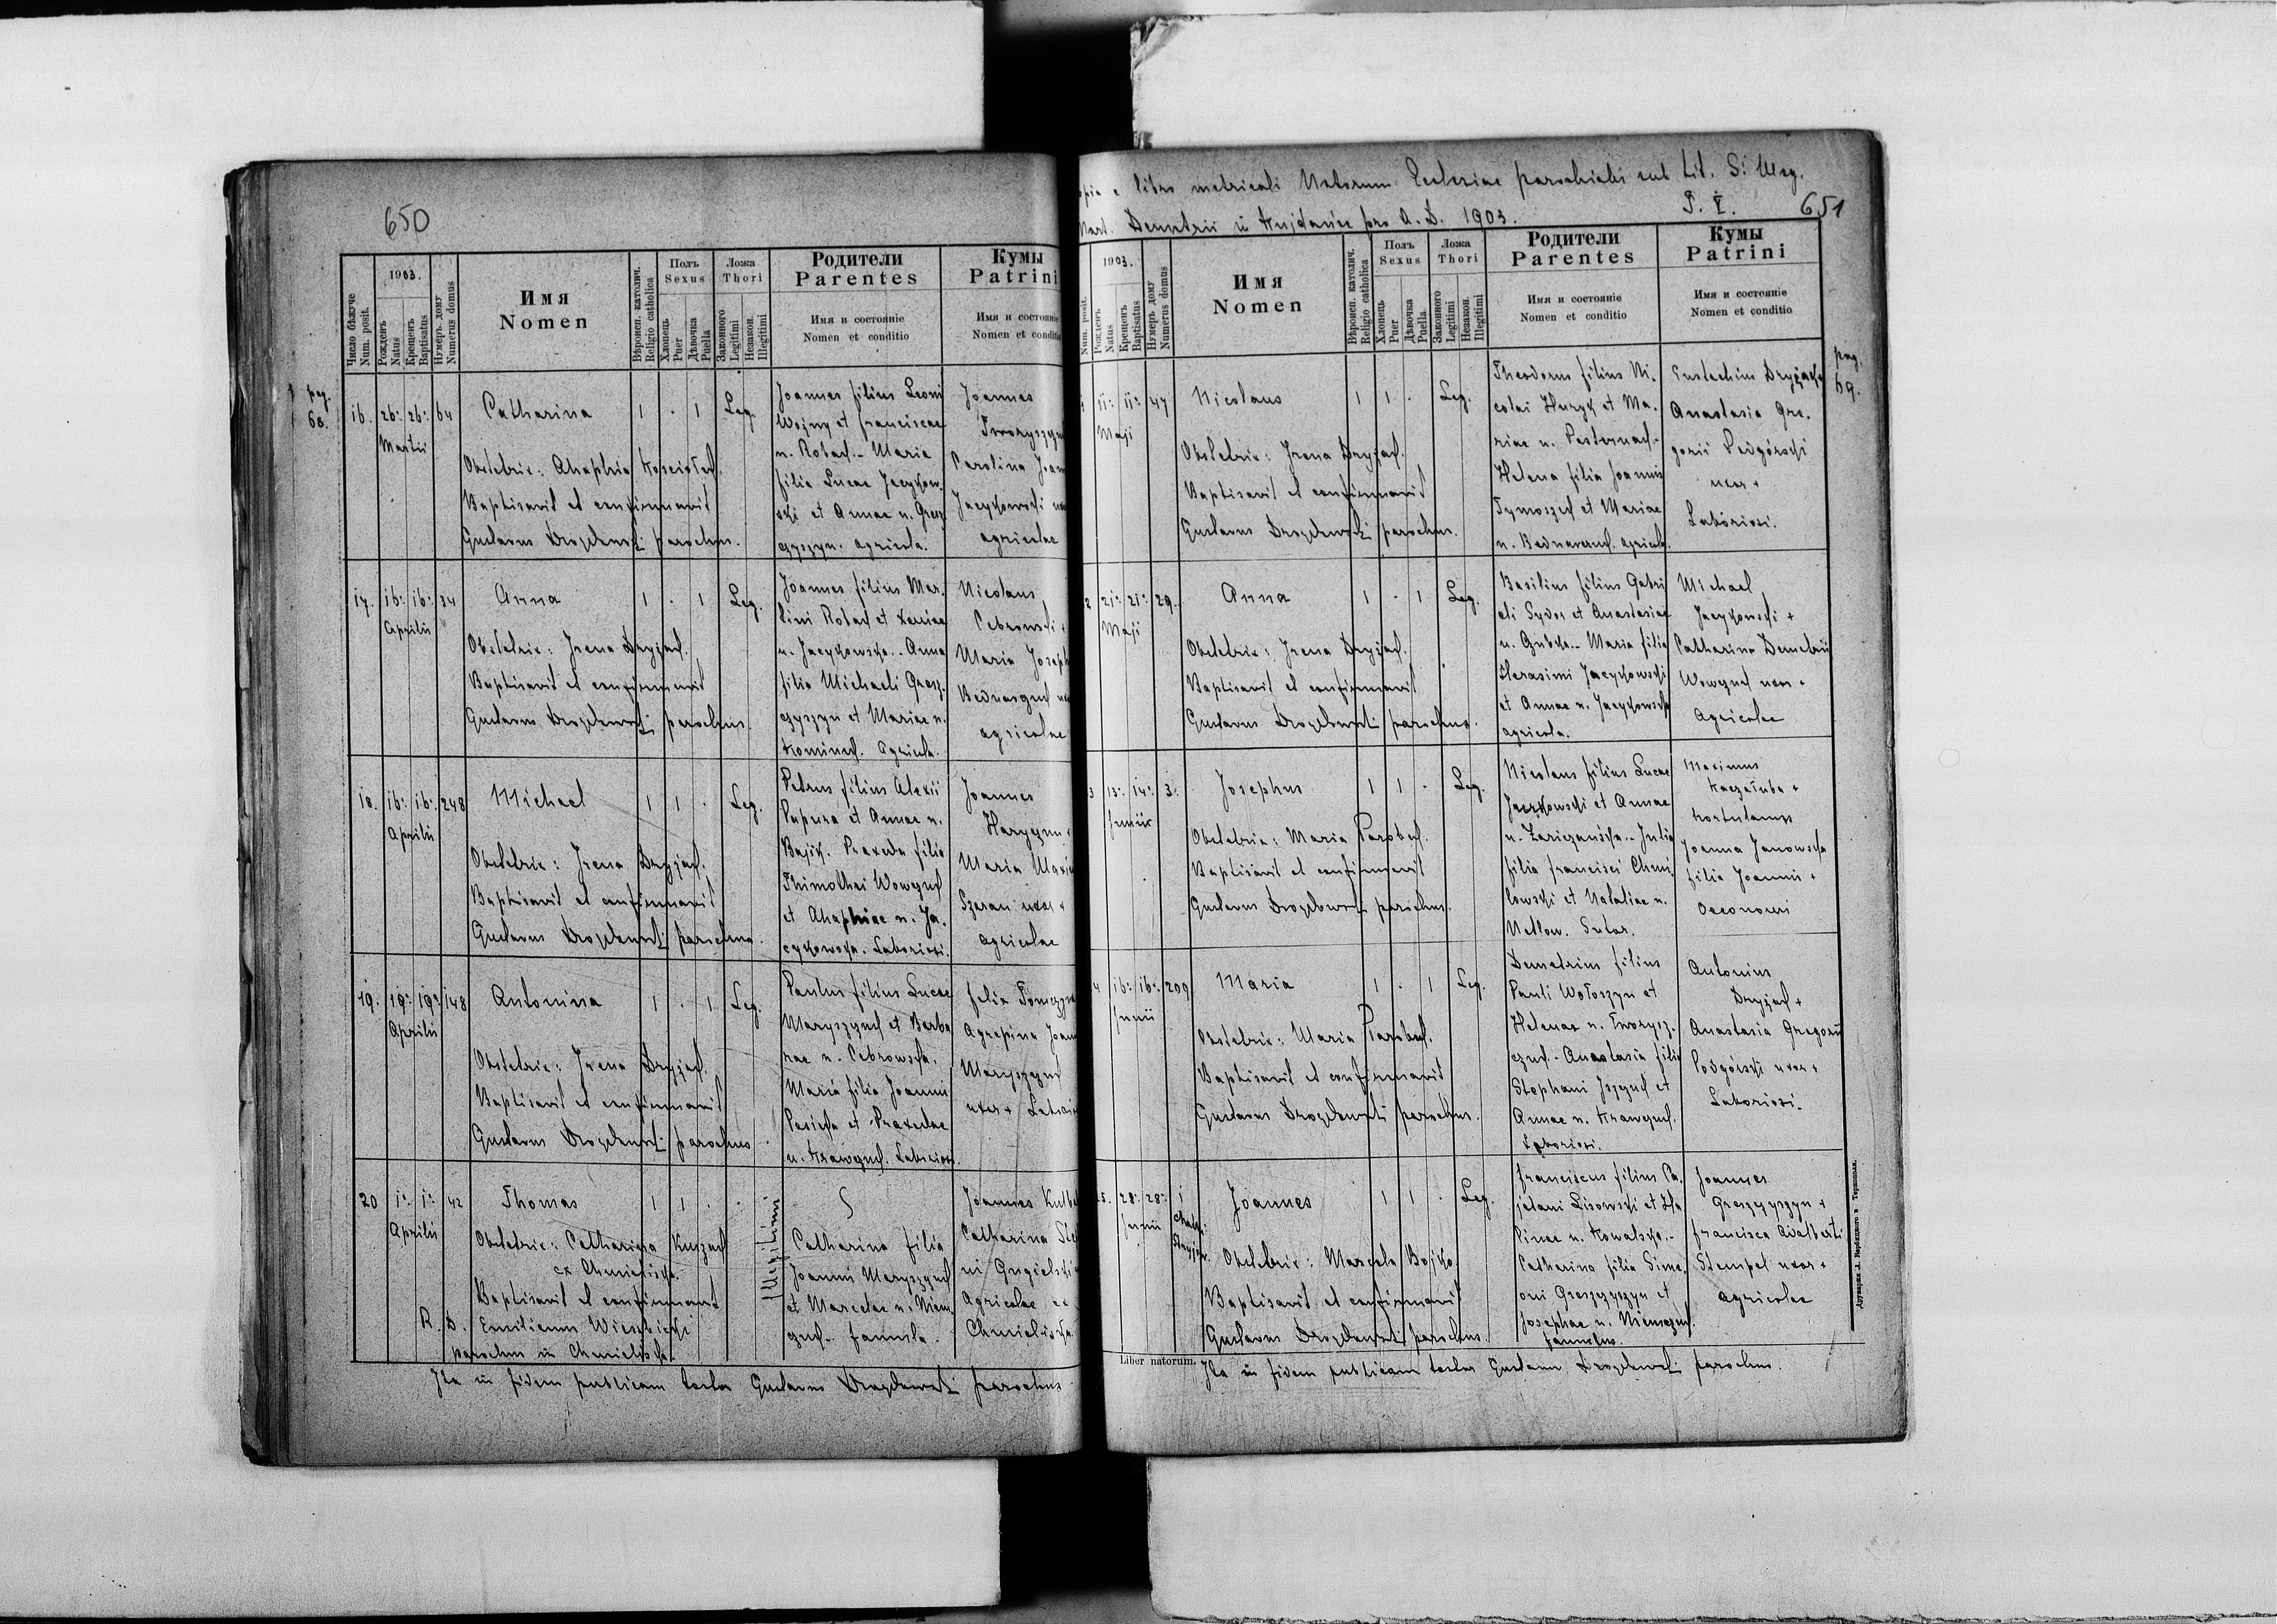 650
Число бѣжуче
Num. posit.
1903.
Рожденъ
Natus
Крещенъ
Baptisatus
Нумеръ дому
Numerus domus
Имя
Nomen
Вѣроисп. католич.
Religio catholica
Полъ
Sexus
Хлопець
Puer
Дѣвочка
Puella
Ложа
Thori
Законного
Legitimi
Незакон.
Illegitimi
Родители
Parentes
Имя и состояніе
Nomen et conditio
Кумы
Patrini
Имя и состояніе
Nomen et conditio
pag.
68.
16. 26. 26. 64 Catharina 1 . 1 Leg.
Martii
Obstetrix: Ahaphia
Baptisavit et confirmavit
Gustavus Drozdowski parochus.
Joannes filius Leoni
Wojny et Franciscae
n. Robak. - Maria
filia Lucae Jacykow-
ski et Annae n. Gresz-
czyszyn. agricola.
Joannes
Carolina
Jacykowski
agricolae
17. 16. 16. 34 Anna 1 . 1 Leg.
Aprilis
Obstetrix: Irena Dryjak.
Baptisavit et confirmavit
Gustavus Drozdowski parochus.
Joannes filius Mar-
tini Robak et Xeniae
n. Jacykowska. - Anna
filia Michaeli Gresz-
czyszyn et Mariae n.
Agricola.
Nicolaus
Cebrowski +
Maria Joseph
agricolae
18. 16. 16. 248 Michael 1 1 . Leg.
Aprilis
Obstetrix: Irena Dryjak.
Baptisavit et confirmavit
Gustavus Drozdowski parochus.
Petrus filius Alexii
et Annae n.
Praxeda filia
Thimothei
et Ahaphiae n. Ja-
cykowska. Laboriosi.
Joannes
Maria
uxor +
agricolae
19. 19. 19. 148 Antonina 1 . 1 Leg.
Aprilis
Obstetrix: Irena Dryjak.
Baptisavit et confirmavit
Gustavus Drozdowski parochus.
Paulus filius Lucae
et Barba-
rae n. Cebrowska.
Maria filia Joannis
et Praxedae
n. Krawczuk. Laboriosi.
Felix
Agrepina
uxor +
20 1. 1. 42 Thomas 1 1 .
Aprilis
Illegitimi
Obstetrix: Catharina
ex Chmieliska.
Baptisavit et confirmavit
R. D. Emilianus
parochus in Chmieliska.
Catharina filia
Joannis
et Marcelae n.
famula.
Joannes
Catharina
Agricolae ex
Chmieliska
Ita in fidem publicam testor Gustavus Drozdowski parochus
Copia e libro metricali Natorum Ecclesiae parochialis sub tit. S. Meg.
Mart. Demetrii in pro A. D. 1903.
T. I.
651
Num. posit.
1903.
Рожденъ
Natus
Крещенъ
Baptisatus
Нумеръ дому
Numerus domus
Имя
Nomen
Вѣроисп. католич.
Religio catholica
Полъ
Sexus
Хлопець
Puer
Дѣвочка
Puella
Ложа
Thori
Законного
Legitimi
Незакон.
Illegitimi
Родители
Parentes
Имя и состояніе
Nomen et conditio
Кумы
Patrini
Имя и состояніе
Nomen et conditio
pag.
69.
11. 11. 47 Nicolaus 1 1 . Leg.
Maji
Obstetrix: Irena Dryjak.
Baptisavit et confirmavit
Gustavus Drozdowski parochus.
Theodorus filius Ni-
colai et Ma-
riae n. Pasternak. -
Helena filia Joannis
Tymoszek et Mariae
n. agricola.
Eustachius
Anastasia Gre-
gorii Podgórski
uxor +
Laboriosi.
2 21. 21. 29. Anna 1 . 1 Leg.
Maji
Obstetrix: Irena Dryjak.
Baptisavit et confirmavit
Gustavus Drozdowski parochus.
Basilius filius Gabri-
eli Sydor et Anastasiae
n. - Maria filia
Harasimi Jacykowski
et Annae n. Jacykowska
agricola.
Michael
Jacykowski +
Catharina Demetrii
uxor +
Agricolae
3 13. 14. 3. Josephus 1 1 . Leg.
Junii
Obstetrix: Maria Parobek.
Baptisavit et confirmavit
Gustavus Drozdowski parochus.
Nicolaus filius Lucae
Jacykowski et Annae
n. - Julia
filia Francisci Chmi-
lowski et Nataliae n.
Sutor.
Maximus
Kaczałuba +
Joanna Janowska
filia Joannis +
Oeconomi
4 16. 16. 209 Maria 1 . 1 Leg.
Junii
Obstetrix: Maria Parobek.
Baptisavit et confirmavit
Gustavus Drozdowski parochus.
Demetrius filius
Pauli Wołoszyn et
Helenae n.
- Anastasia filia
Stephani et
Annae n. Krawczuk.
Laboriosi.
Antonius
Dryjak +
Anastasia Gregorii
Podgórski uxor +
Laboriosi.
5. 28. 28. 1 Joannes 1 1 . Leg.
Junii
Obstetrix: Marcela Bojko.
Baptisavit et confirmavit
Gustavus Drozdowski parochus.
Franciscus filius Ca-
jetani Lisowski et
n. Kowalska. -
Catharina filia Sime-
oni Greszczyszyn et
Josephae n.
famulus.
Joannes
Greszczyszyn +
Francisca Adalberti
Stempel uxor +
agricolae
Liber natorum.
Ita in fidem publicam testor Gustavus Drozdowski parochus.